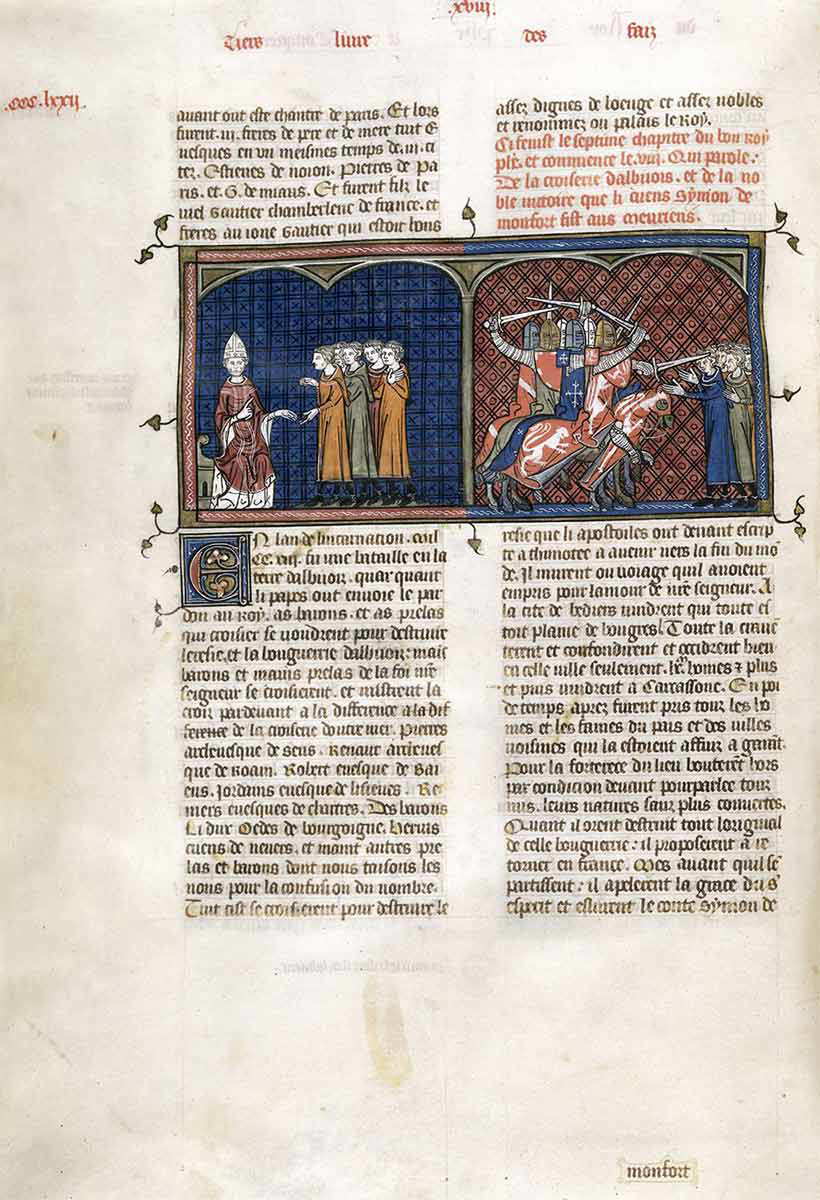 .xviij.
Tiers liure des faiz
.CCC.lxxij.
auant out este chantre de paris. Et lors
furent .iij. freres de pere et de mere tuit E
uesques en un meismes temps de .iij. ci
tez. Estienes de noion. Pierres de Pa
ris. et G. de miaus. Et furent filz le
uiel Gautier chamberlenc de france. et
freres au ione Gautier qui estoit bons
assez dignes de loenge et assez nobles
et renommez ou palais le Roy.
Ci fenist le septime chapitre du bon Roy
phe. et commence le .viij. Qui parole.
De la croiserie dalbijois. et de la no
ble uictoire que li cuens Symon de
monfort fist aus
En lan de lincarnation .mil
CC. fu une bataille en la
terre dalbijois. quar quant
li papes out envoie le par
don au Roy. as barons. et as prelas
qui croisier se uoudrent pour destruire
leresie. et la bouguerie dalbijois: maint
barons et maint prelas de la foi nre
seigneur se croisierent. et mistrent la
croiz pardeuant a la difference a la dif
ference de la croiserie doutre mer. Pierres
arceuesque de sens. Renaut arceues
que de Roam. Robert euesque de Bai
eus. Jordains euesque de lisieues. Re
niers euesques de chartres. Des barons
Li dux Oedes de bourgoigne. Heruis
cuens de neuers. et maint autres pre
las et barons dont nous taisons les
nons pour la confusion du nombre.
Tuit cist se croisierent pour destruire le
resie que li apostoiles out deuant escrip
te a thimotee a auenir uers la fin du mo
de. Il murent ou uoiage quil auoient
empris pour lamour de nre seigneur. A
la cite de bediers uindrent qui toute es
toit plaine de bougres. Toute la crauē
terent et confondirent et occidrent bien
en celle uille seulement. homes et plus
et puis uindrent a Carcassone. En poi
de temps aprez furent pris touz les ho
mes et les fames du pais et des uilles
uoisines qui la estoient affui a garāt.
Pour la forterece du lieu bouterēt hors
par condicion deuant pourparlee touz
nus. leurs natures sanz plus couuertes.
Quant il orent destruit tout loriginal
de celle bouguerie: il proposerent a re
torner en france. Mes auant quil se
partissent: il apelerent la grace du s'
esperit et eslurent le conte Symon de
monfort